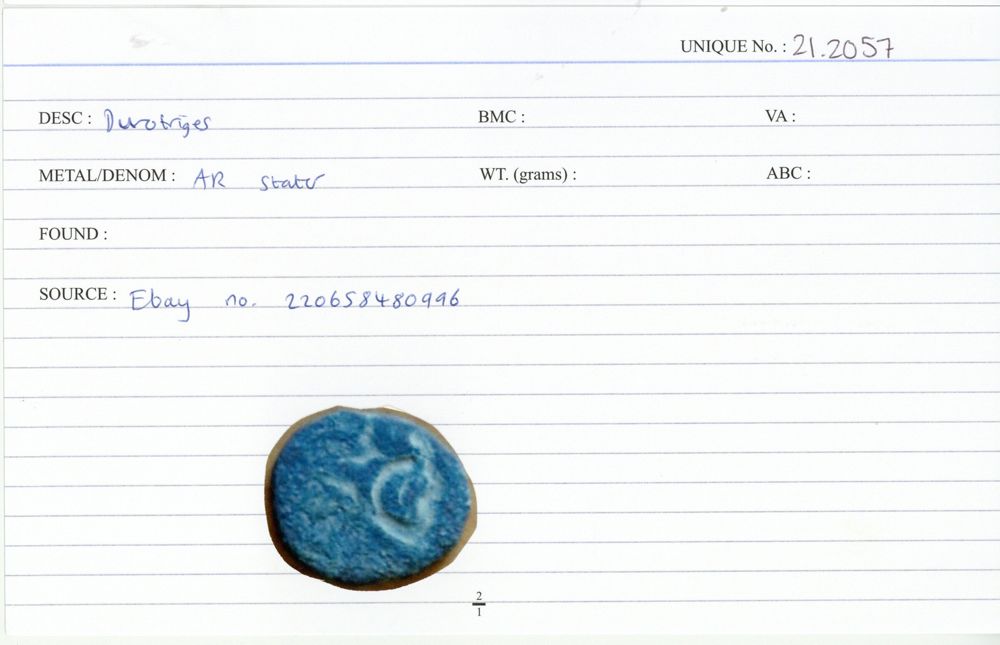 UNIQUE No. : 21.2057
DESC : Durotriges BMC : VA :
METAL/DENOM : AR stater WT. (grams) : ABC :
FOUND :
SOURCE : Ebay no. 220658480996
2
1